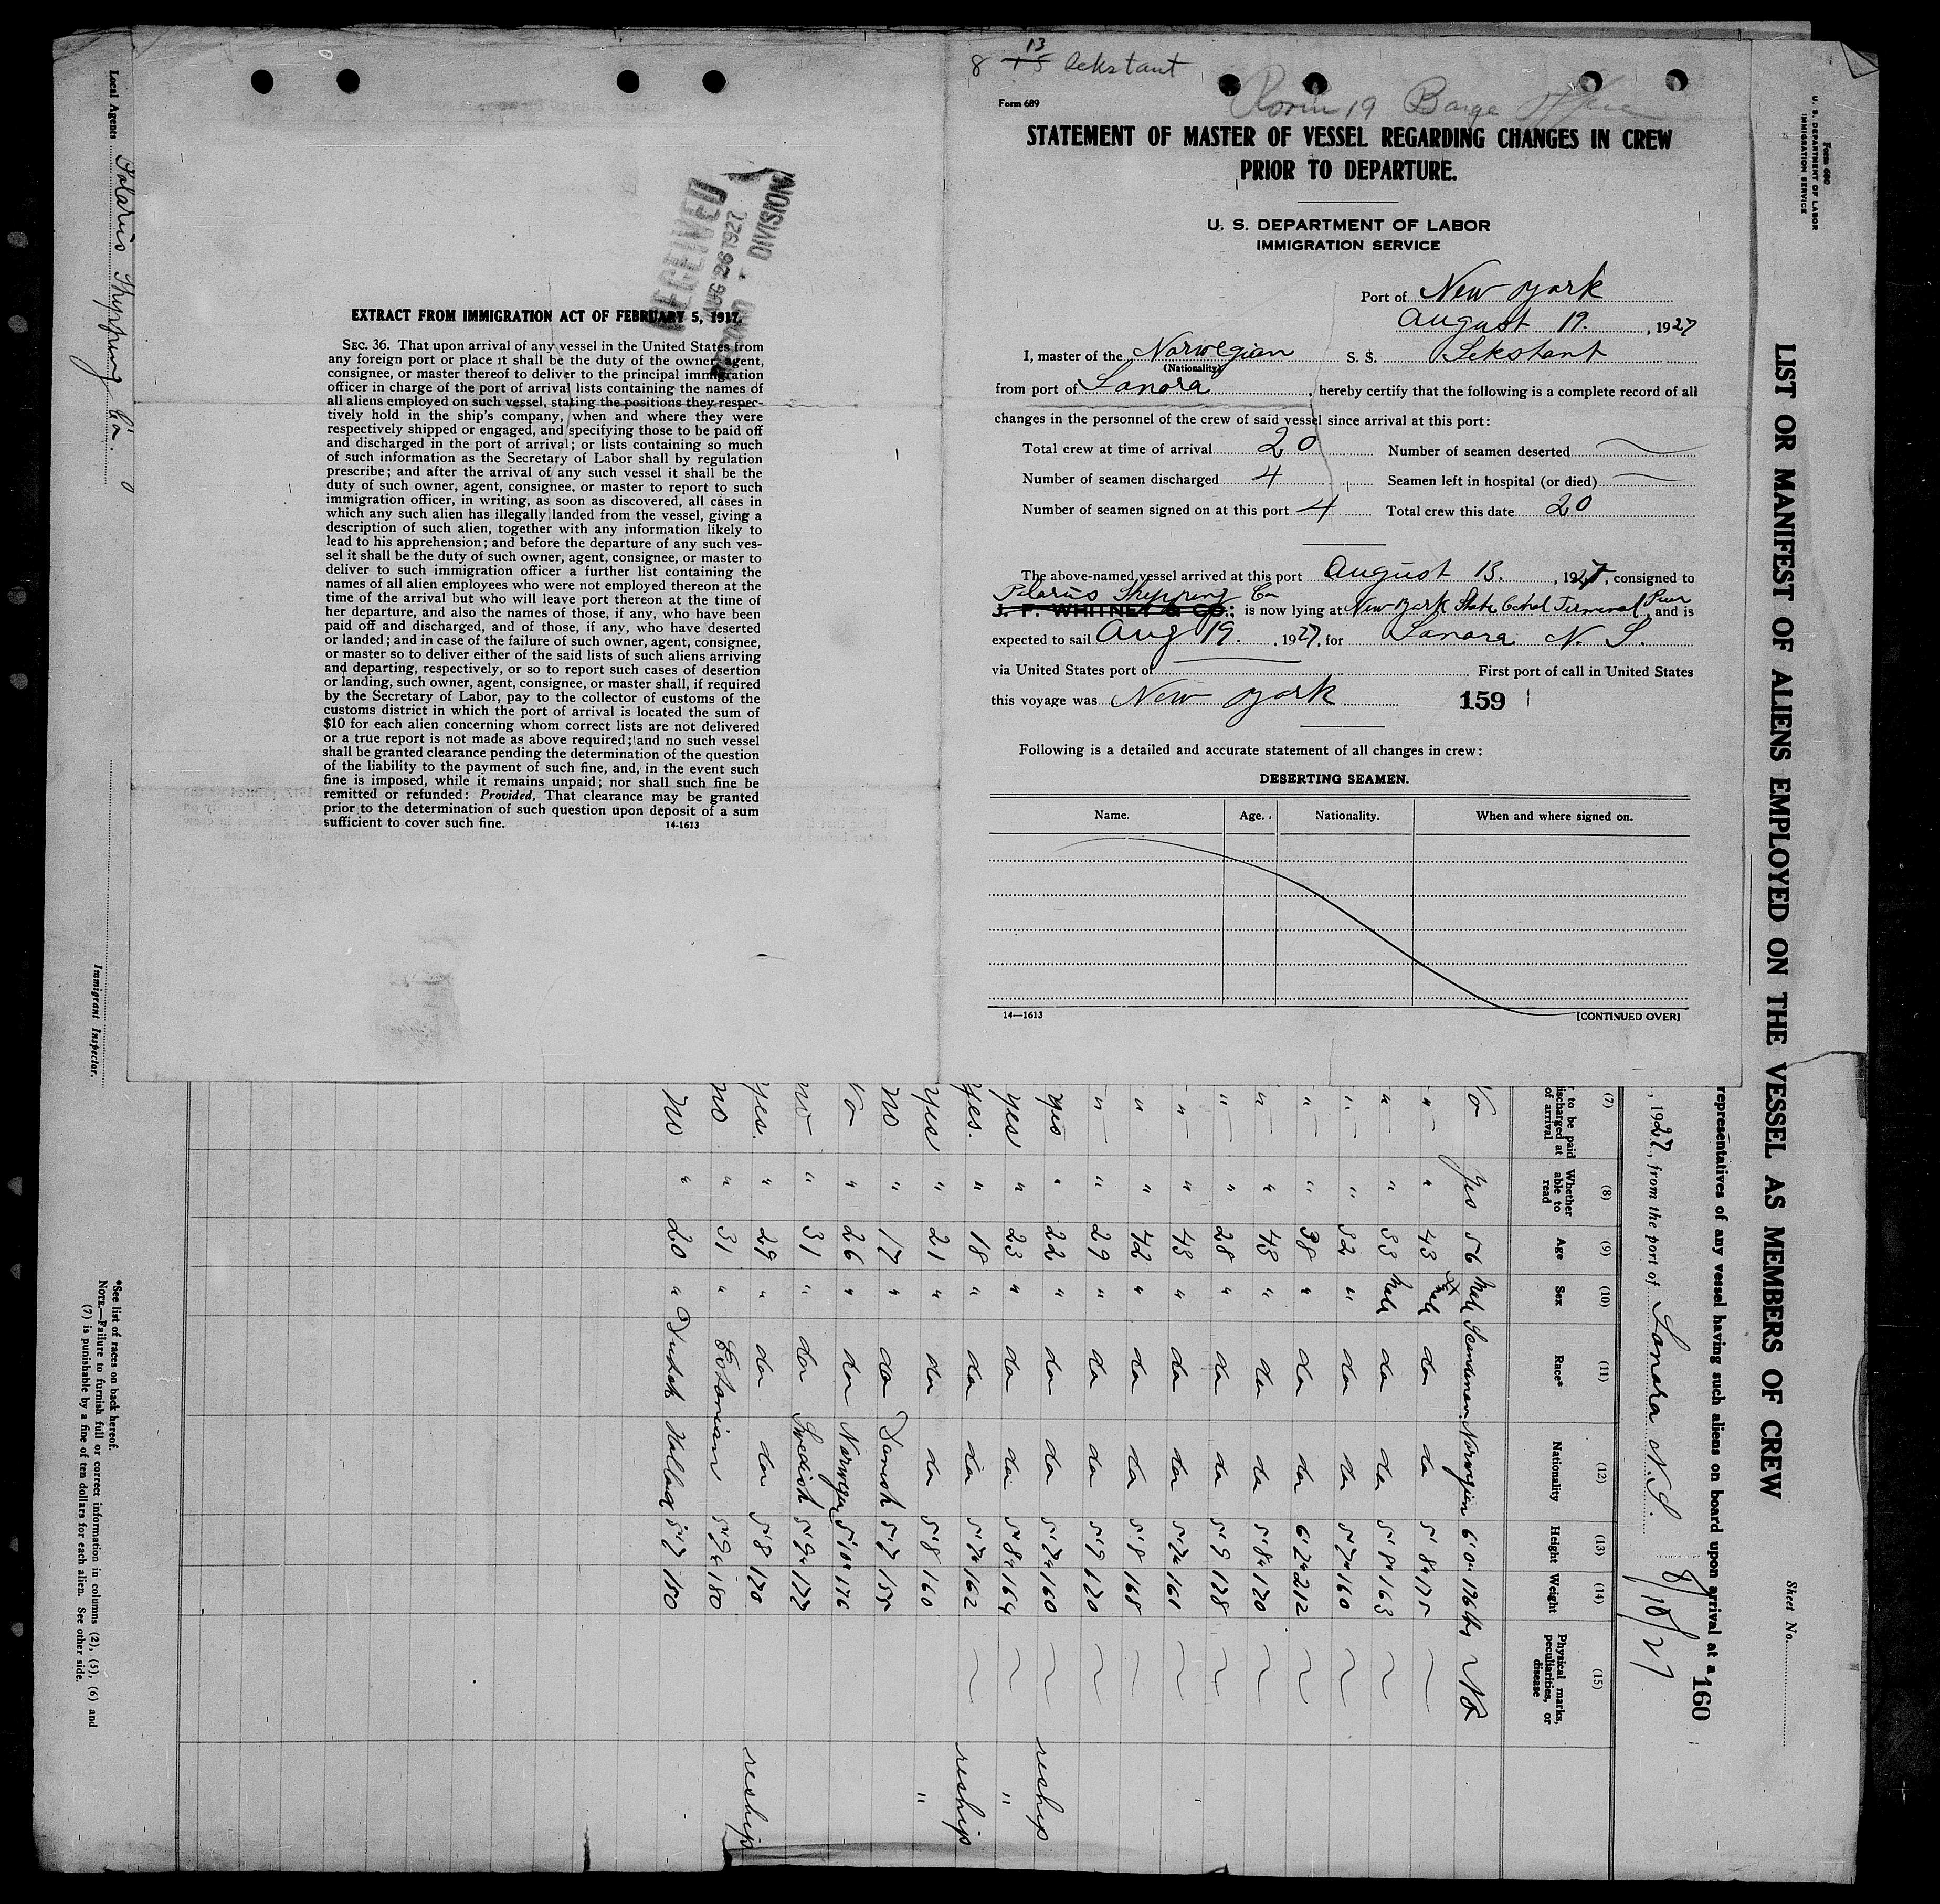 8 13 15 Sekstant
Room 19 Barge Office
Form 689
STATEMENT OF MASTER OF VESSEL REGARDING CHANGES IN CREW
PRIOR TO DEPARTURE.
U. S. DEPARTMENT OF LABOR
IMMIGRATION SERVICE
Port of New York
August 19. , 1927
I, master of the Norwegian S. S. Sekstant
(Nationality)
from port of Sonora , hereby certify that the following is a complete record of all
changes in the personnel of the crew of said vessel since arrival at this port:
Total crew at time of arrival 20 Number of seamen deserted
Number of seamen discharged 4 Seamen left in hospital (or died)
Number of seamen signed on at this port 4 Total crew this date 20
The above-named vessel arrived at this port August 13. , 1927, consigned to
Shipping Co
J. F. WHITNEY & CO.; is now lying at New York State Terminal Pier and is
expected to sail Aug 19. , 1927, for Sonora N. S.
via United States port of First port of call in United States
this voyage was New York 159
Following is a detailed and accurate statement of all changes in crew:
DESERTING SEAMEN.
Name. Age. Nationality. When and where signed on.
14—1613 [CONTINUED OVER]
RECEIVED
AUG 26 1927
DIVISION
EXTRACT FROM IMMIGRATION ACT OF FEBRUARY 5, 1917.
SEC. 36. That upon arrival of any vessel in the United States from
any foreign port or place it shall be the duty of the owner, agent,
consignee, or master thereof to deliver to the principal immigration
officer in charge of the port of arrival lists containing the names of
all aliens employed on such vessel, stating the positions they respec-
tively hold in the ship's company, when and where they were
respectively shipped or engaged, and specifying those to be paid off
and discharged in the port of arrival; or lists containing so much
of such information as the Secretary of Labor shall by regulation
prescribe; and after the arrival of any such vessel it shall be the
duty of such owner, agent, consignee, or master to report to such
immigration officer, in writing, as soon as discovered, all cases in
which any such alien has illegally landed from the vessel, giving a
description of such alien, together with any information likely to
lead to his apprehension; and before the departure of any such ves-
sel it shall be the duty of such owner, agent, consignee, or master to
deliver to such immigration officer a further list containing the
names of all alien employees who were not employed thereon at the
time of the arrival but who will leave port thereon at the time of
her departure, and also the names of those, if any, who have been
paid off and discharged, and of those, if any, who have deserted
or landed; and in case of the failure of such owner, agent, consignee,
or master so to deliver either of the said lists of such aliens arriving
and departing, respectively, or so to report such cases of desertion
or landing, such owner, agent, consignee, or master shall, if required
by the Secretary of Labor, pay to the collector of customs of the
customs district in which the port of arrival is located the sum of
$10 for each alien concerning whom correct lists are not delivered
or a true report is not made as above required; and no such vessel
shall be granted clearance pending the determination of the question
of the liability to the payment of such fine, and, in the event such
fine is imposed, while it remains unpaid; nor shall such fine be
remitted or refunded: Provided, That clearance may be granted
prior to the determination of such question upon deposit of a sum
sufficient to cover such fine. 14-1613
Form 680
U. S. DEPARTMENT OF LABOR
IMMIGRATION SERVICE
LIST OR MANIFEST OF ALIENS EMPLOYED ON THE VESSEL AS MEMBERS OF CREW
Sheet No.
representatives of any vessel having such aliens on board upon arrival at a 160
, 1927, from the port of Sonora N.S. 8/10/27
(7) (8) (9) (10) (11) (12) (13) (14) (15)
to be paid discharged at of arrival Whether able to read Age Sex Race* Nationality Height Weight Physical marks, peculiarities, or disease
No Yes 56 Male Scandinav. Norwegian 6'0" 176 lbs No
" " 43 Male do do 5'8" 175
" " 33 Male do do 5'8" 163
" " 32 " do do 5'7" 160
" " 38 " do do 6'2" 212
" " 43 " do do 5'8" 170
" " 28 " do do 5'9 178
" " 43 " do do 5'7" 161
" " 42 " do do 5'8 168
" " 29 " do do 5'9 170
yes " 22 " do do 5'7" 160 reship
yes " 23 " do do 5'8" 164 "
yes. " 18 " do do 5'7" 162 reship
yes " 21 " do do 5'8 160 "
no " 17 " do Danish 5'7 155
no " 26 " do Norwegian 5'10" 176
no " 31 " do Swedish 5'9" 177
yes. " 29 " do do 5'8 170 reship
no " 31 " Estonian 5'9" 180
no " 20 " Dutch Holland 5'7 150
Local Agents Polarus Shipping Co.
Immigrant Inspector.
*See list of races on back hereof.
NOTE.—Failure to furnish full or correct information in columns (2), (5), (6) and
(7) is punishable by a fine of ten dollars for each alien. See other side.